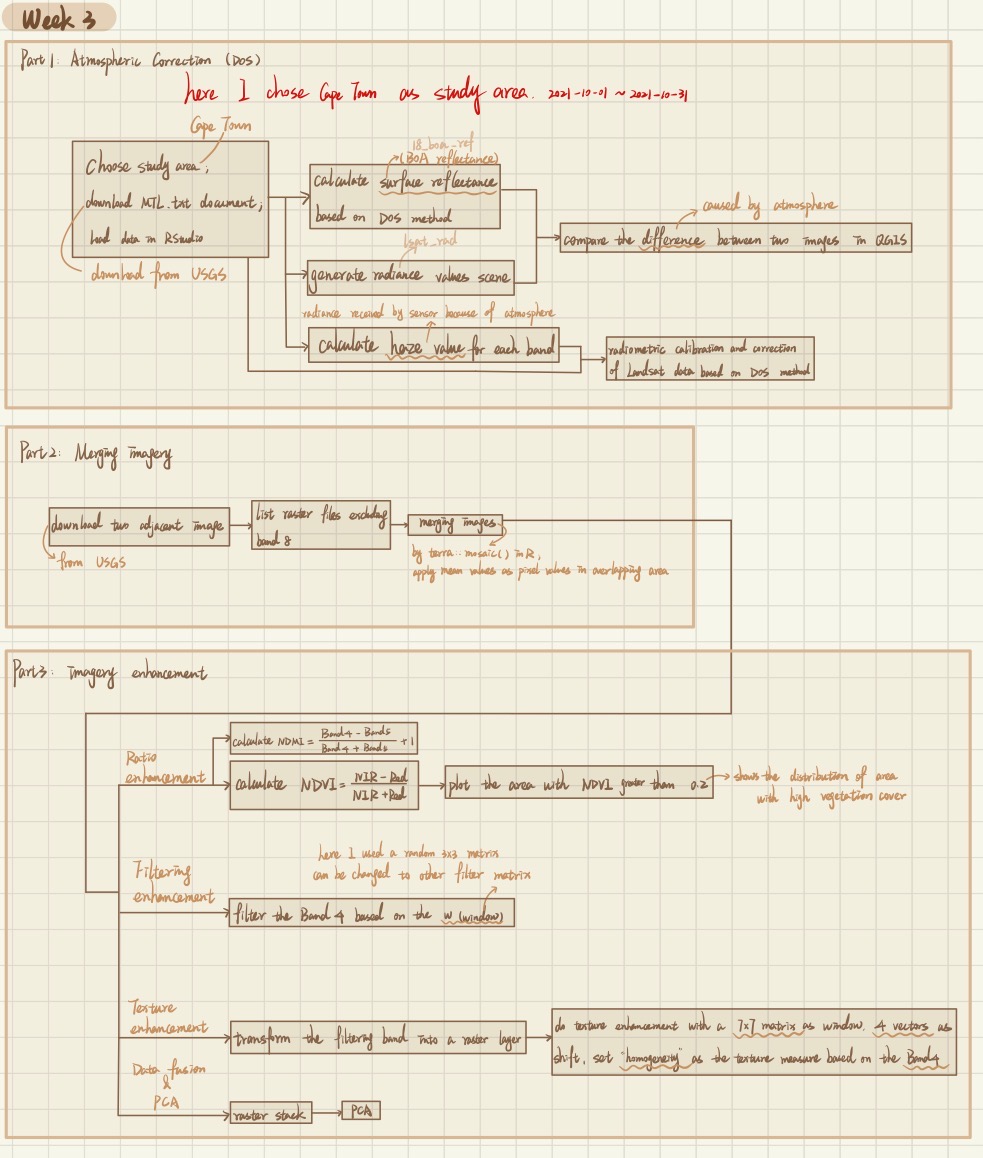 Week 3
Part 1: Atmospheric Correction (DOS)
here I chose Cape Town as study area. 2021-10-01 ~ 2021-10-31
Cape Town
Choose study area;
download MTL.txt document;
load data in RStudio
download from USGS
l8_boa_ref
(BOA reflectance)
calculate surface reflectance
based on DOS method
lsat_rad
generate radiance values scene
radiance received by sensor because of atmosphere
calculate haze value for each band
caused by atmosphere
compare the difference between two images in QGIS
radiometric calibration and correction
of Landsat data based on DOS method
Part 2: Merging imagery
download two adjacent image
from USGS
list raster files excluding
band 8
merging images
by terra::mosaic() in R,
apply mean values as pixel values in overlapping area
Part 3: imagery enhancement
Ratio
enhancement
calculate NDMI = Band4 - Band5 / Band4 + Band5 + 1
calculate NDVI = NIR - Red / NIR + Red
plot the area with NDVI greater than 0.2
shows the distribution of area
with high vegetation cover
Filtering
enhancement
here I used a random 3x3 matrix
can be changed to other filter matrix
filter the Band 4 based on the w (window)
Texture
enhancement
transform the filtering band into a raster layer
do texture enhancement with a 7x7 matrix as window, 4 vectors as
shift, set "homogeneity" as the texture measure based on the Band4
Data fusion
&
PCA
raster stack
PCA